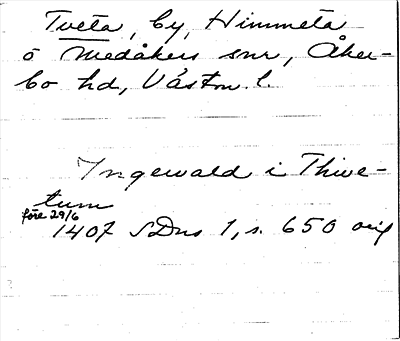 Tveta, by, Himmeta
o Medåkers snr, Åker-
bo hd, Västm. l.
Ingewald i Thive-
tum
före 29/6
1407 SDns 1, s. 650 orig